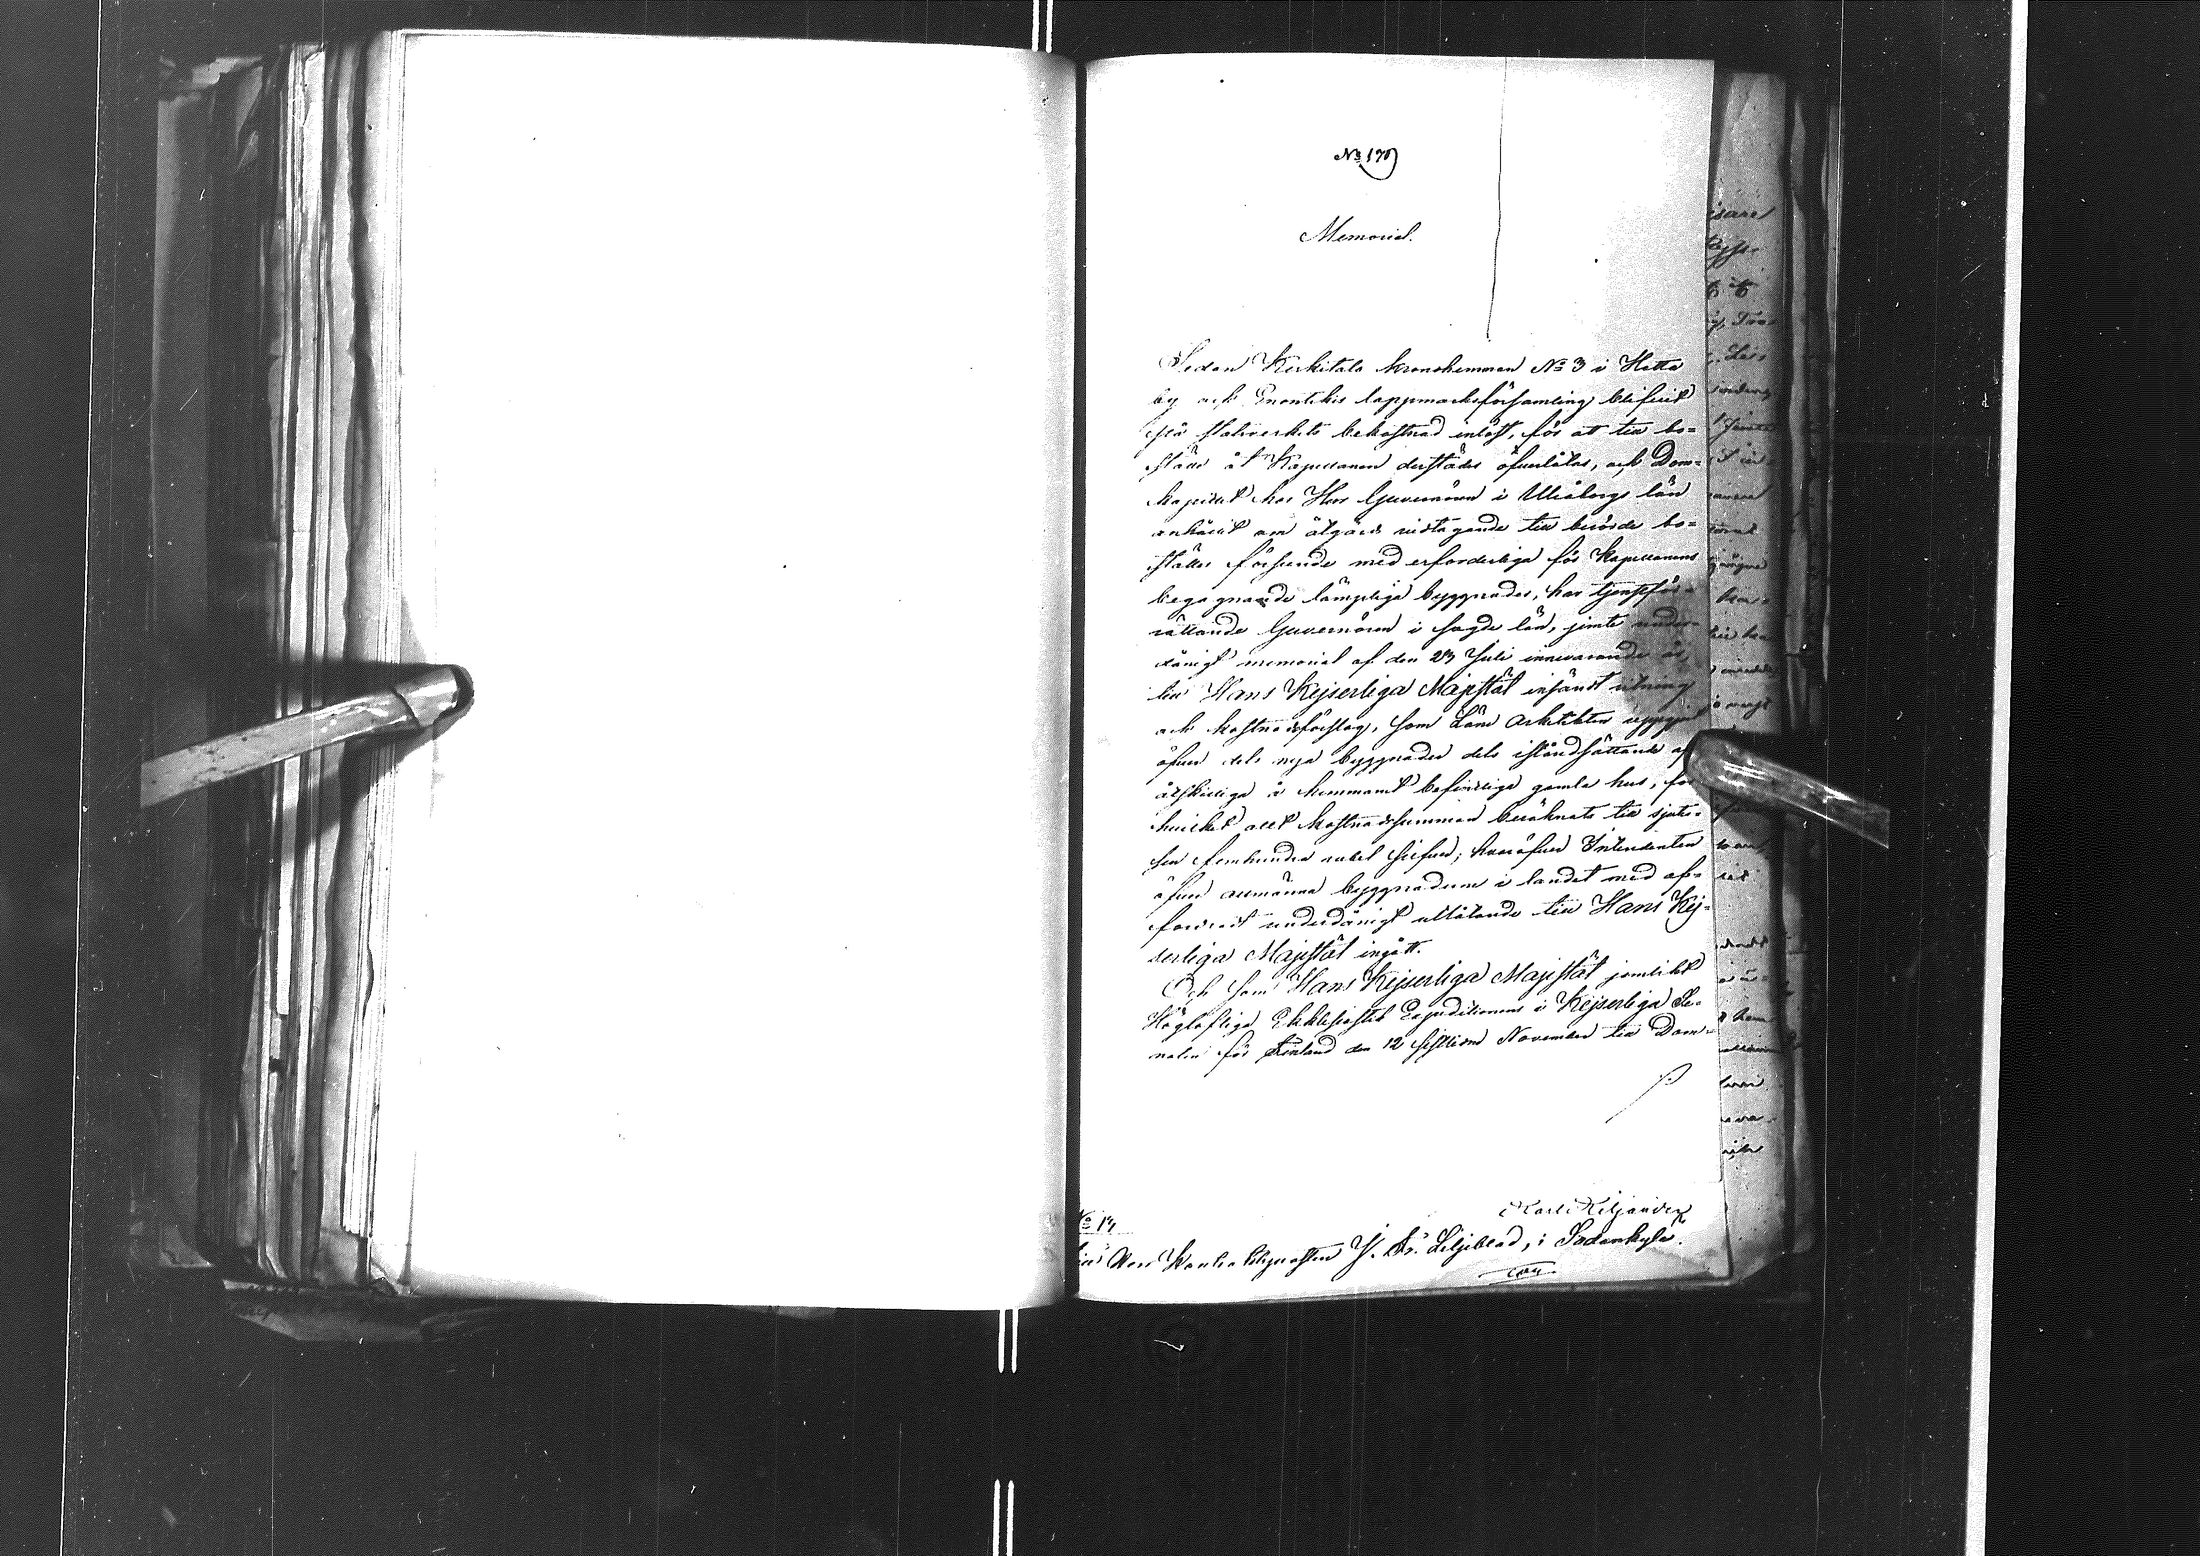 No 170
Memorial.
Sedan Kerkitala kronohemman No 3 i Hetta
by och Enontekis lappmarksförsamling blifvit
på statsverkets bekostnad inlöst, för att till bo=
ställe åt Kapellanen derstädes öfverlåtas, och Dom=
kapitlet hos Herr Guvernören i Uleåborgs län
anhållit om åtgärds vidtagande till berörde bo=
ställes förseende med erforderliga för Kapellanens
begagnande lämpliga byggnader, har tjenstför=
rättande Guvernören i sagde län, jemte under=
dånigt memorial af den 23 Juli innevarande år,
till Hans Kejserliga Majestät insändt ritning
och kostnadsförslag, som Läns Arkitekten uppgjort
öfver dels nya byggnader dels iståndsättande af
åtskilliga å hemmanet befintliga gamla hus, för
hvilket allt kostnadssumman beräknats till sjutu=
sen femhundra rubel silfver; hvaröfver Intendenten
öfver allmänna byggnaderne i landet med af=
fordradt underdånigt utlåtande till Hans Kej=
serliga Majestät ingått.
Och som Hans Kejserliga Majestät jemlikt
Högloflige Ekklesiastik Expeditionens i Kejserliga Se=
naten för Finland den 12 sistlidne November till Dom=
No 13
Karl Kiljander
till Herr Kontraktsprosten J. Fr. Liljeblad, i Sodankylä.